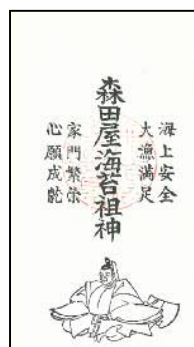 海上安全
大漁満足
森田屋海苔祖神
家門繁栄
心願成就